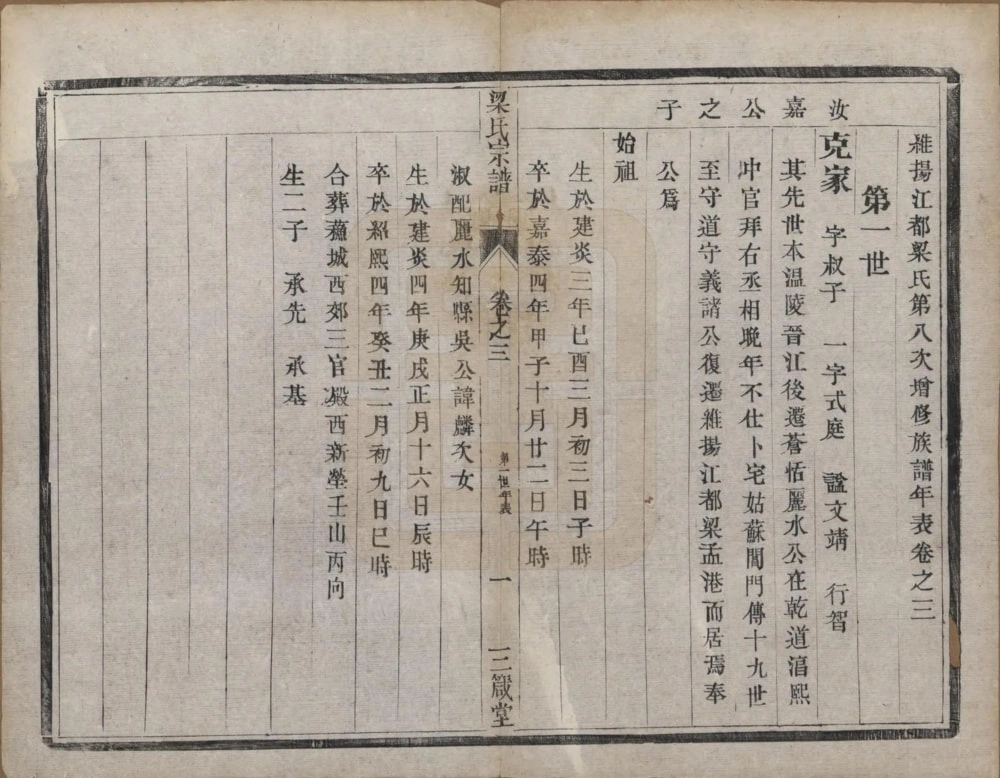 維揚江都梁氏第八次增修族譜年表卷之三
第一世
汝嘉公之子
克家　字叔子　一字式庭　諡文靖　行智
其先世本温陵晉江後遷蒼恬麗水公在乾道淳熙
中官拜右丞相晚年不仕卜宅姑蘇閶門傳十九世
至守道守義諸公復遷維揚江都梁孟港而居焉奉
公爲
始祖
生於建炎三年巳酉三月初三日子時
卒於嘉泰四年甲子十月廿二日午時
梁氏宗譜　卷之三　第一世年表　一　三箴堂
淑配麗水知縣吳公諱麟次女
生於建炎四年庚戌正月十六日辰時
卒於紹熙四年癸丑二月初九日巳時
合葬蘓城西郊三官殿西新塋壬山丙向
生二子　承先　承基